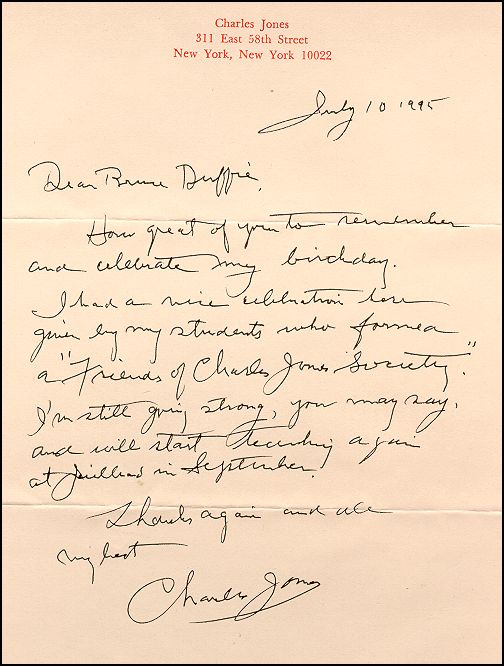 Charles Jones
311 East 58th Street
New York, New York 10022
July 10 1995
Dear Bruce Duffie,
How great of you to remember
and celebrate my birthday.
I had a nice celebration here
given by my students who formed
a "Friends of Charles Jones Society."
I'm still going strong, you may say,
and will start teaching again
at Juilliard in September.
Thanks again and all
my best
Charles Jones